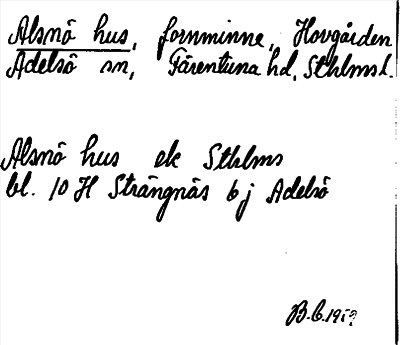 Alsnö hus, fornminne, Hovgården
Adelsö sn, Färentuna hd, Sthlmsl.
Alsnö hus ek Sthlms
bl. 10 H Strängnäs 6 j Adelsö